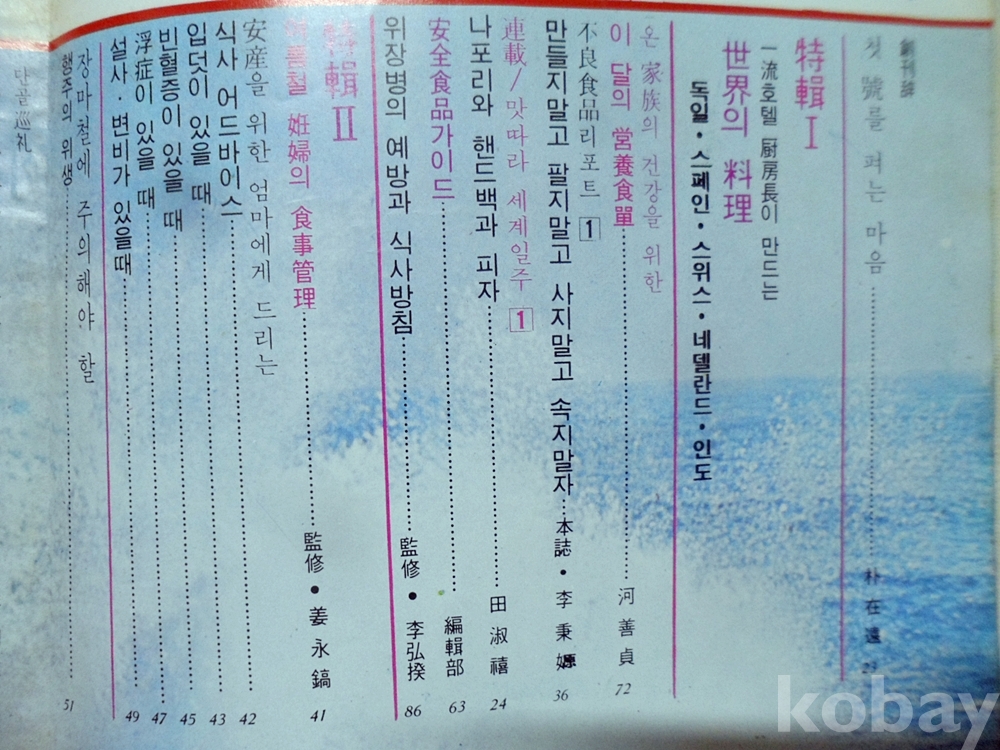 創刊辭
첫 號를 펴는 마음 朴在遠
特輯 I
一流호텔 厨房長이 만드는
世界의 料理
독일·스페인·스위스·네델란드·인도
온 家族의 건강을 위한
이 달의 営養食單 河善貞 72
不良食品리포트 1
만들지말고 팔지말고 사지말고 속지말자 本誌·李秉 36
連載/맛따라 세계일주 1
나포리와 핸드백과 피자 田淑禧 24
安全食品가이드 編輯部 63
위장병의 예방과 식사방침 監修·李弘揆 86
特輯 II
姙婦의 食事管理 監修·姜永鎬 41
安産을 위한 엄마에게 드리는
식사 어드바이스 42
입덧이 있을 때 43
빈혈증이 있을 때 45
浮症이 있을 때 47
설사·변비가 있을때 49
장마철에 주의해야 할
행주의 위생 51
단골 巡礼
kobay